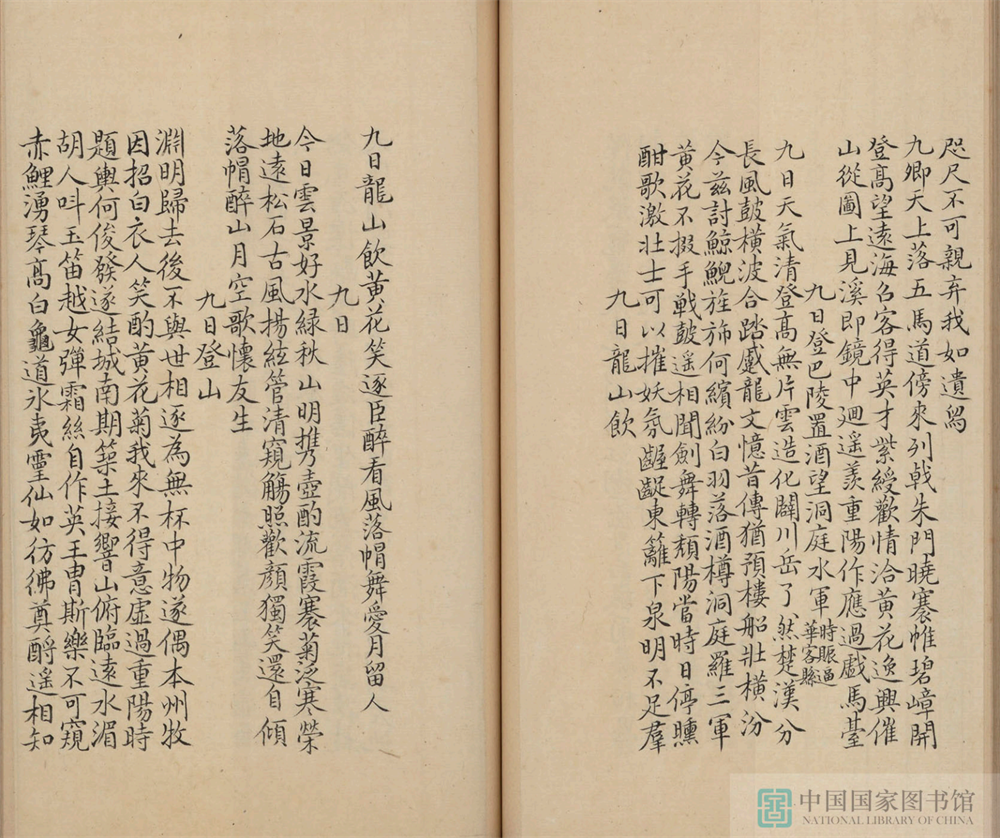 咫尺不可親弃我如遺舄
九卿天上落五馬道傍來列戟朱門曉褰帷碧嶂開
登髙望遠海召客得英才紫綬歡情洽黃花逸興催
山從圖上見溪即鏡中廻遥羡重陽作應過戲馬臺
九日登巴陵置酒望洞庭水軍時賑逼華容縣
九日天氣清登髙無片雲造化闢川岳了然楚漢分
長風鼓橫波合踏蹙龍文憶昔傳猶預樓船壯橫汾
今茲討鯨鯢旌斾何繽紛白羽落酒樽洞庭羅三軍
黃花不掇手戰鼓遥相聞劍舞轉頹陽當時日停曛
酣歌激壯士可以摧妖氛龌龊東籬下泉明不足羣
九日龍山飲
九日龍山飲黃花笑逐臣醉看風落帽舞愛月留人
九日
今日雲景好水綠秋山明携壺酌流霞搴菊泛寒榮
地遠松石古風揚絃管清窺觴照歡顔獨笑還自傾
落帽醉山月空歌懷友生
九日登山
淵明歸去後不與世相逐為無杯中物遂偶本州牧
因招白衣人笑酌黃花菊我來不得意虛過重陽時
題輿何俊發遂結城南期築土接響山俯臨遠水湄
胡人呌玉笛越女彈霜絲自作英王胄斯樂不可窺
赤鯉湧琴髙白龜道氷夷靈仙如彷彿奠酹遥相知
中国国家图书馆
NATIONAL LIBRARY OF CHINA